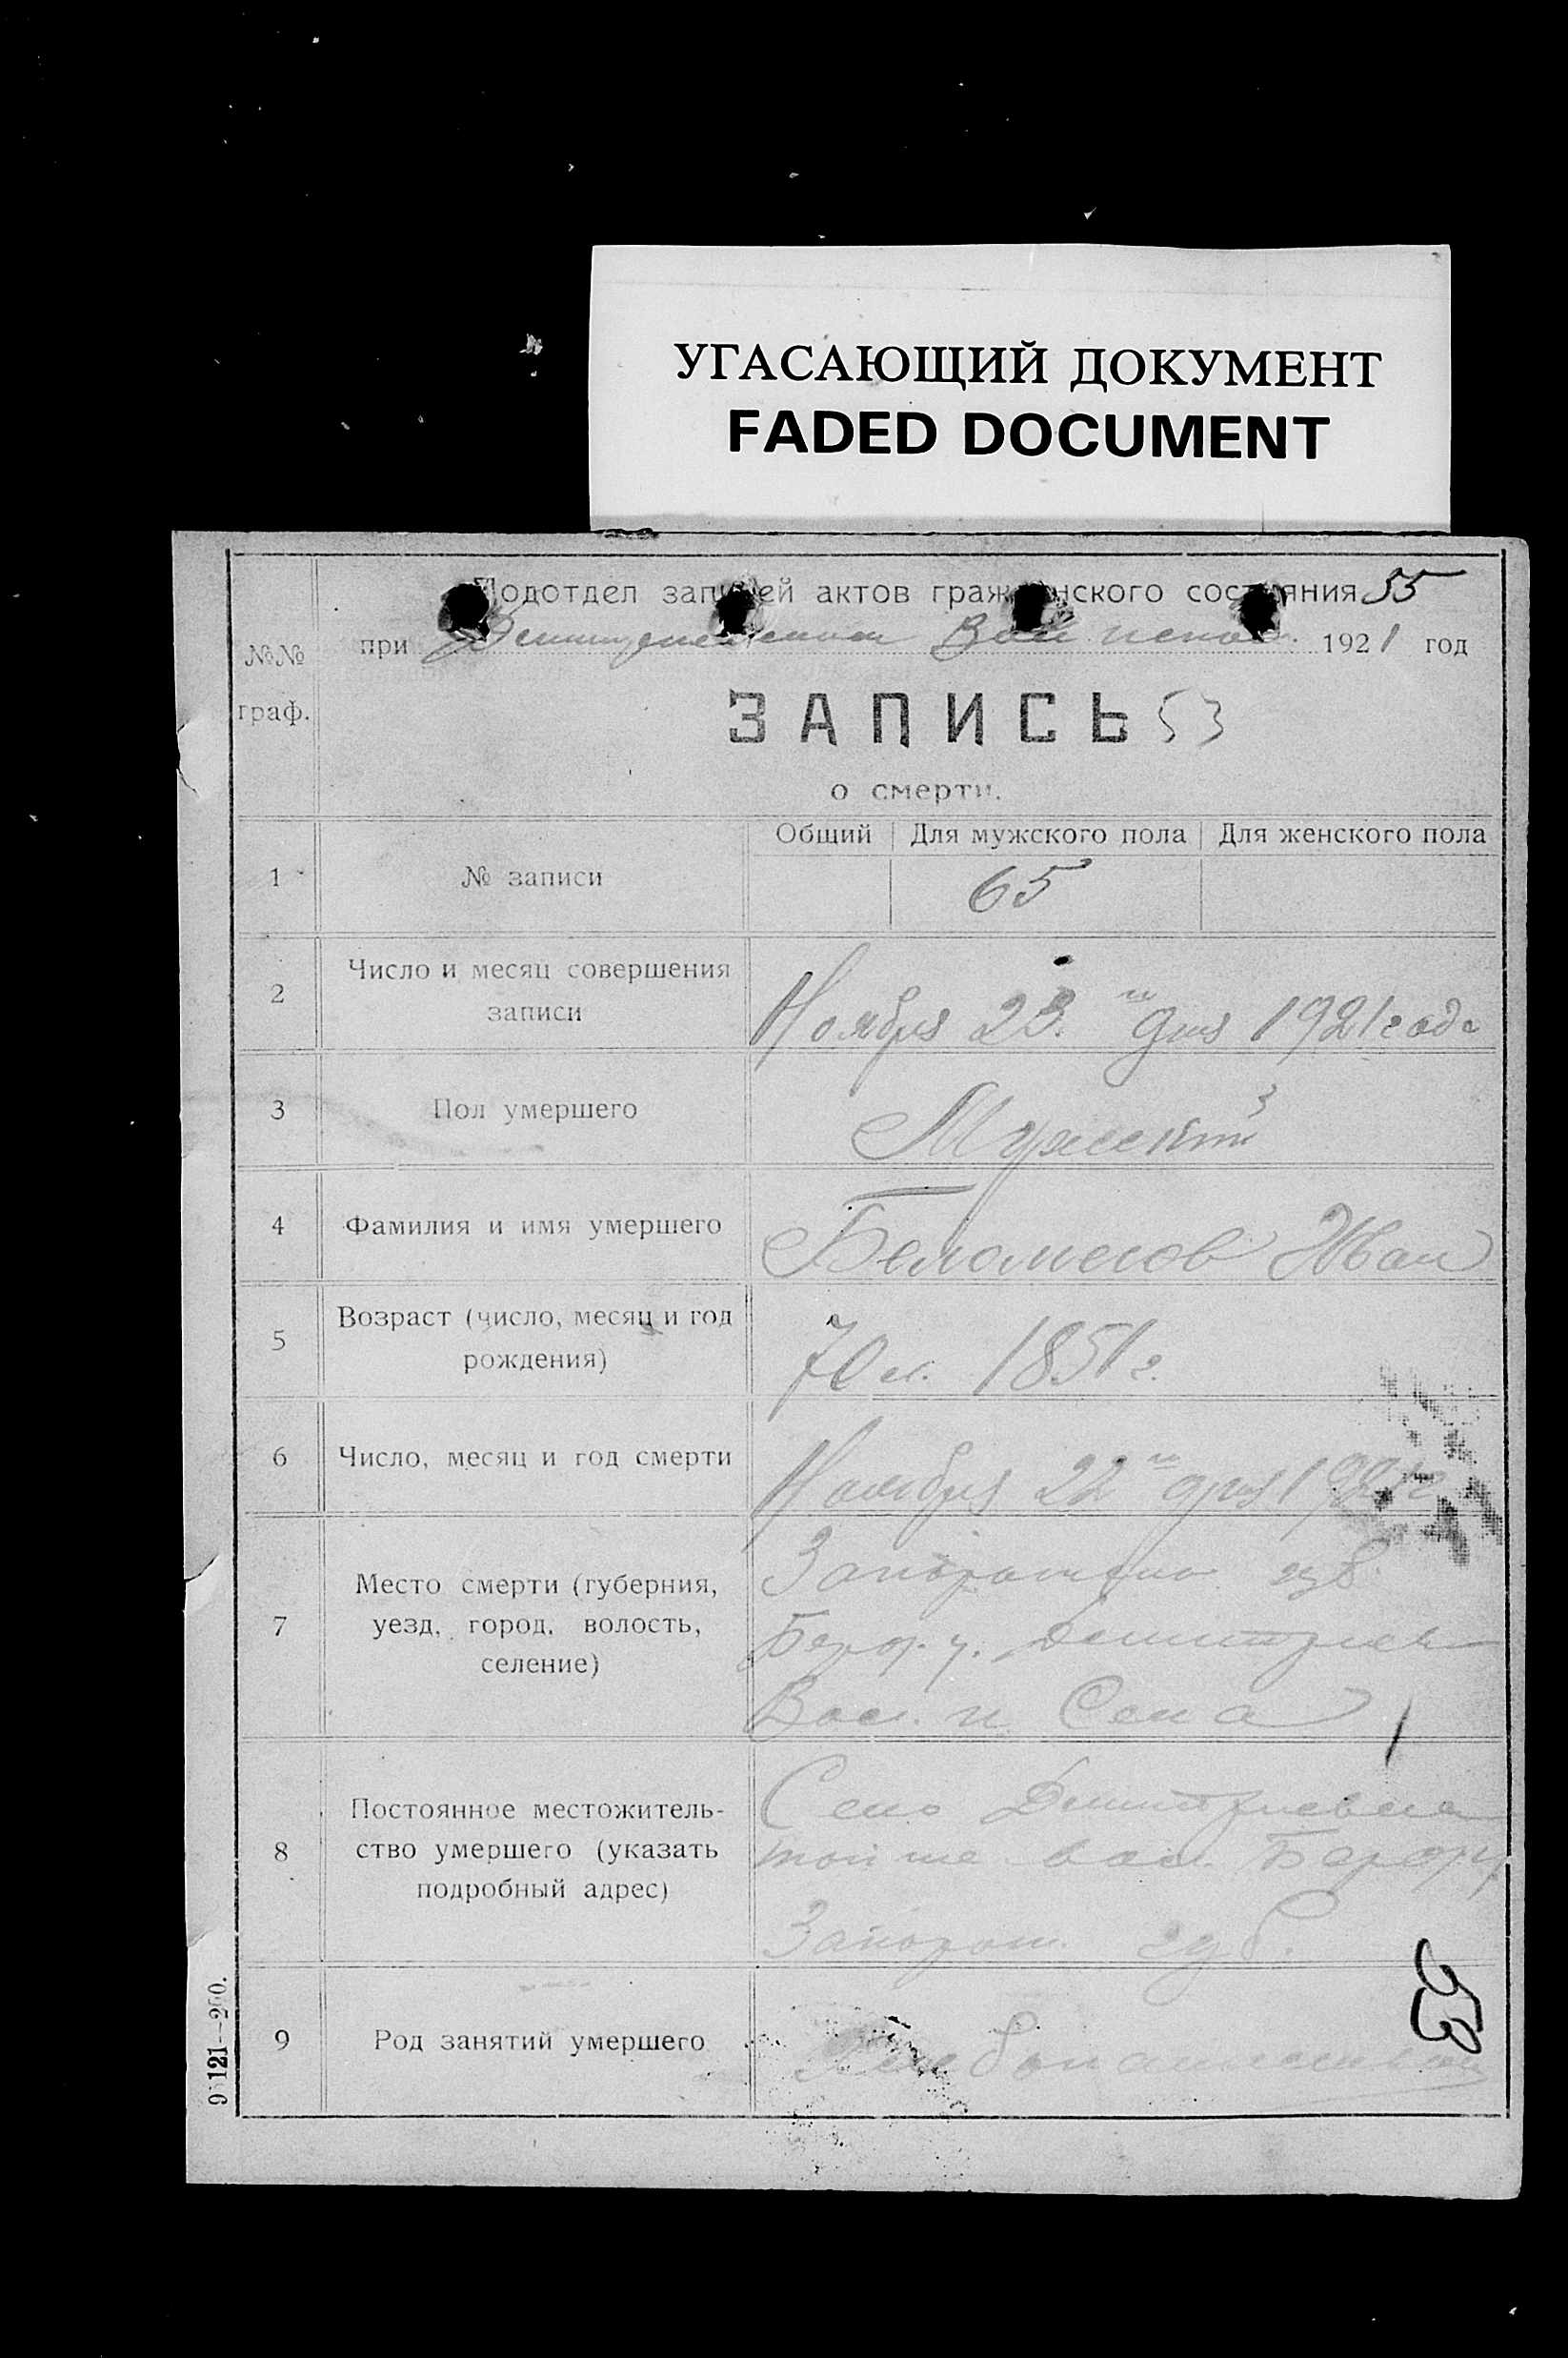 УГАСАЮЩИЙ ДОКУМЕНТ
FADED DOCUMENT
Подотдел записей актов гражданского состояния 55
при Вол 1921 год
№№
граф.
ЗАПИСЬ 53
о смерти.
Общий Для мужского пола Для женского пола
1 № записи 65
2 Число и месяц совершения
записи
Ноября 23. го дня 1921 года
3 Пол умершего Мужской 3
4 Фамилия и имя умершего Беломесов Иван
5 Возраст (число, месяц и год
рождения)
70 л. 1851 г.
6 Число, месяц и год смерти Ноября 22 го дня 1921 г.
7 Место смерти (губерния,
уезд, город, волость,
селение)
губ.
Берд. у. Дмитриев
Вол. и Села
8 Постоянное местожитель-
ство умершего (указать
подробный адрес)
Село Дмитриевка
той же вол. Берд у.
Запорож. губ.
9 Род занятий умершего Хлебопашество
53